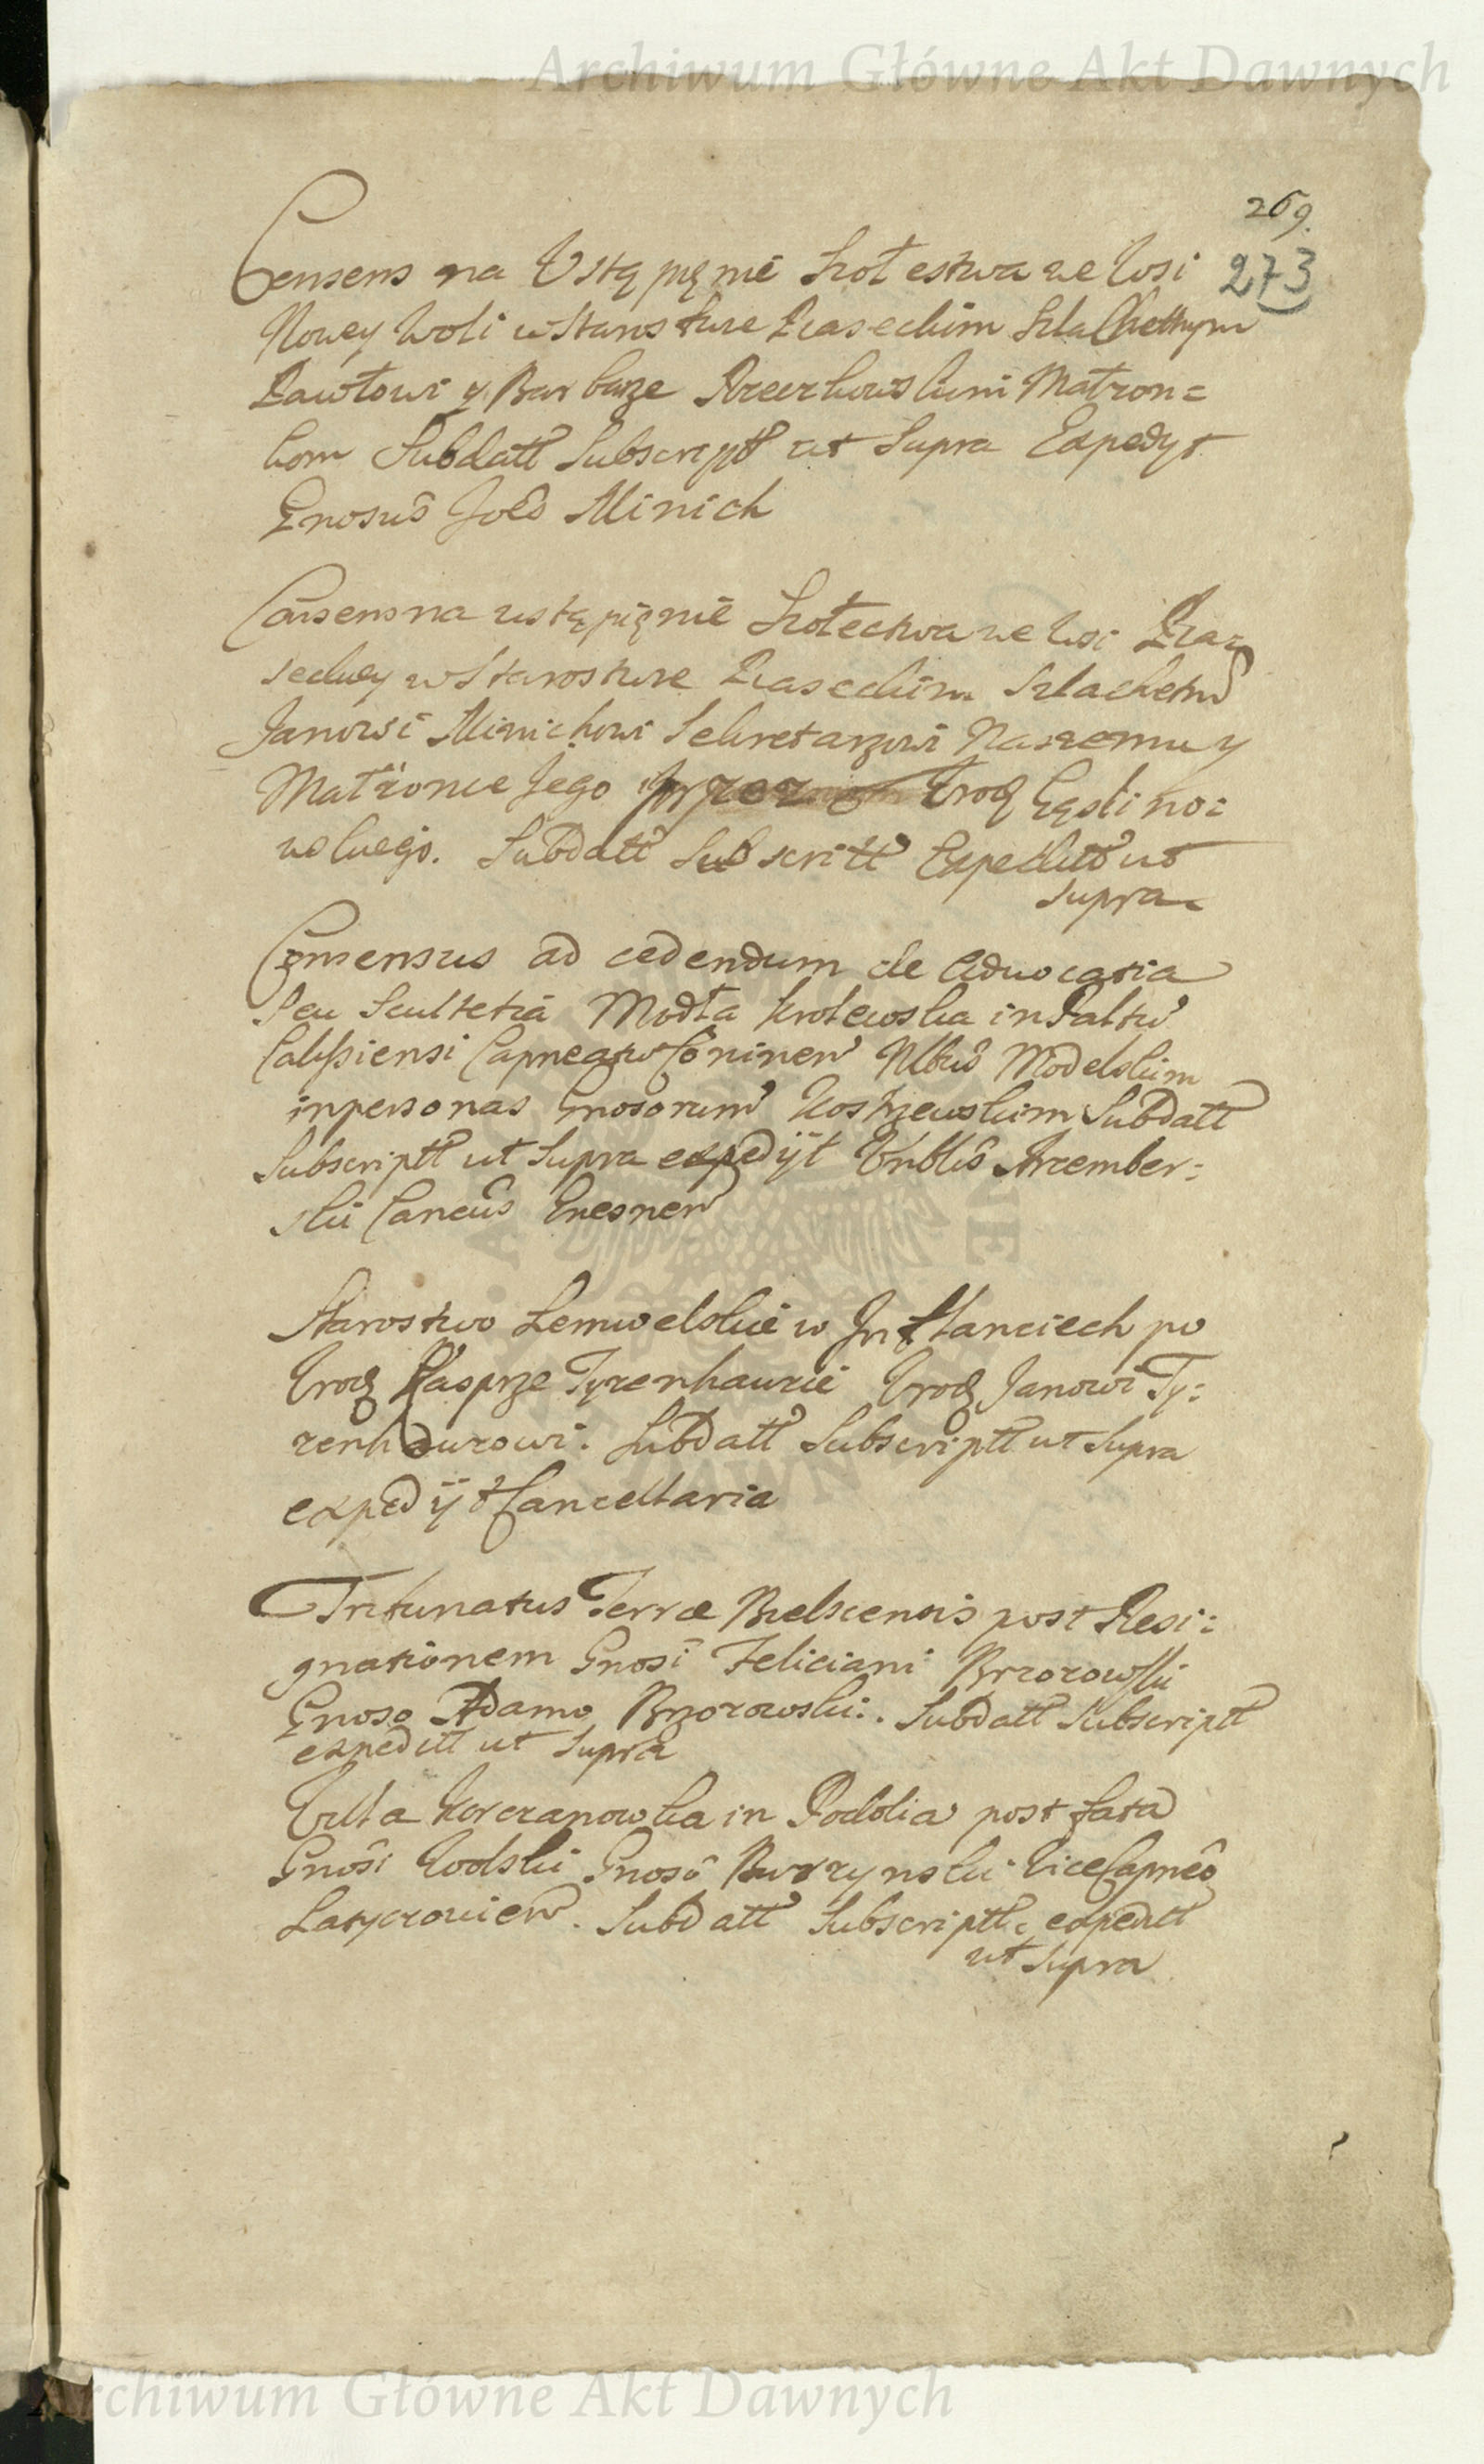 Archiwum Główne Akt Dawnych
269.
273
Consens na Ustąpięnie Szołestwa we Wsi
Nowey Woli w Starostwie Piaseckim Szlachetnym
Pawłowi y Barbarze Małżon=
kom Subdatt Subscriptt ut Supra Expedyt
Gnosus Joes Minich
Consens na ustąpięnie Szołectwa we Wsi Pia=
seckey w Starostwie Piaseckim Szlachetn
Janowi Minichowi Sekretarzowi Naszemu y
Małżonce Jego przez Urod Gąsli no=
wskiego. Subdatt Subscritt Expeditt ut
supra
Consensus ad cedendum de Advocatia
seu Scultetia Modła Krolewska in Paltu
Calissiensi Capneatu Coninen Nbus Modelskim
in personas Gnosorum Kostrzewskim Subdatt
Subscriptt ut Supra expedijt Vrblis Krzember=
ski Cancus Gnesnen
Starostwo Lemwelskie w Inflanciech po
Urod Kasprze Tyzenhauzie Urod Janowi Ty=
zenhauzowi. Subdatt Subscriptt ut Supra
expedijt Cancellaria
Tribunatus Terræ Bielscensis post Resi=
gnationem Gnosi Feliciani Brzozowski
Gnoso Adamo Brzozowski. Subdatt Subscriptt
expeditt ut Supra
Villa Korczanowka in Podolia post fata
Gnosi Wodski Gnoso Burzynski ViceCapneo
Latyczovien. Subdatt Subscriptt expeditt
ut Supra
Archiwum Główne Akt Dawnych